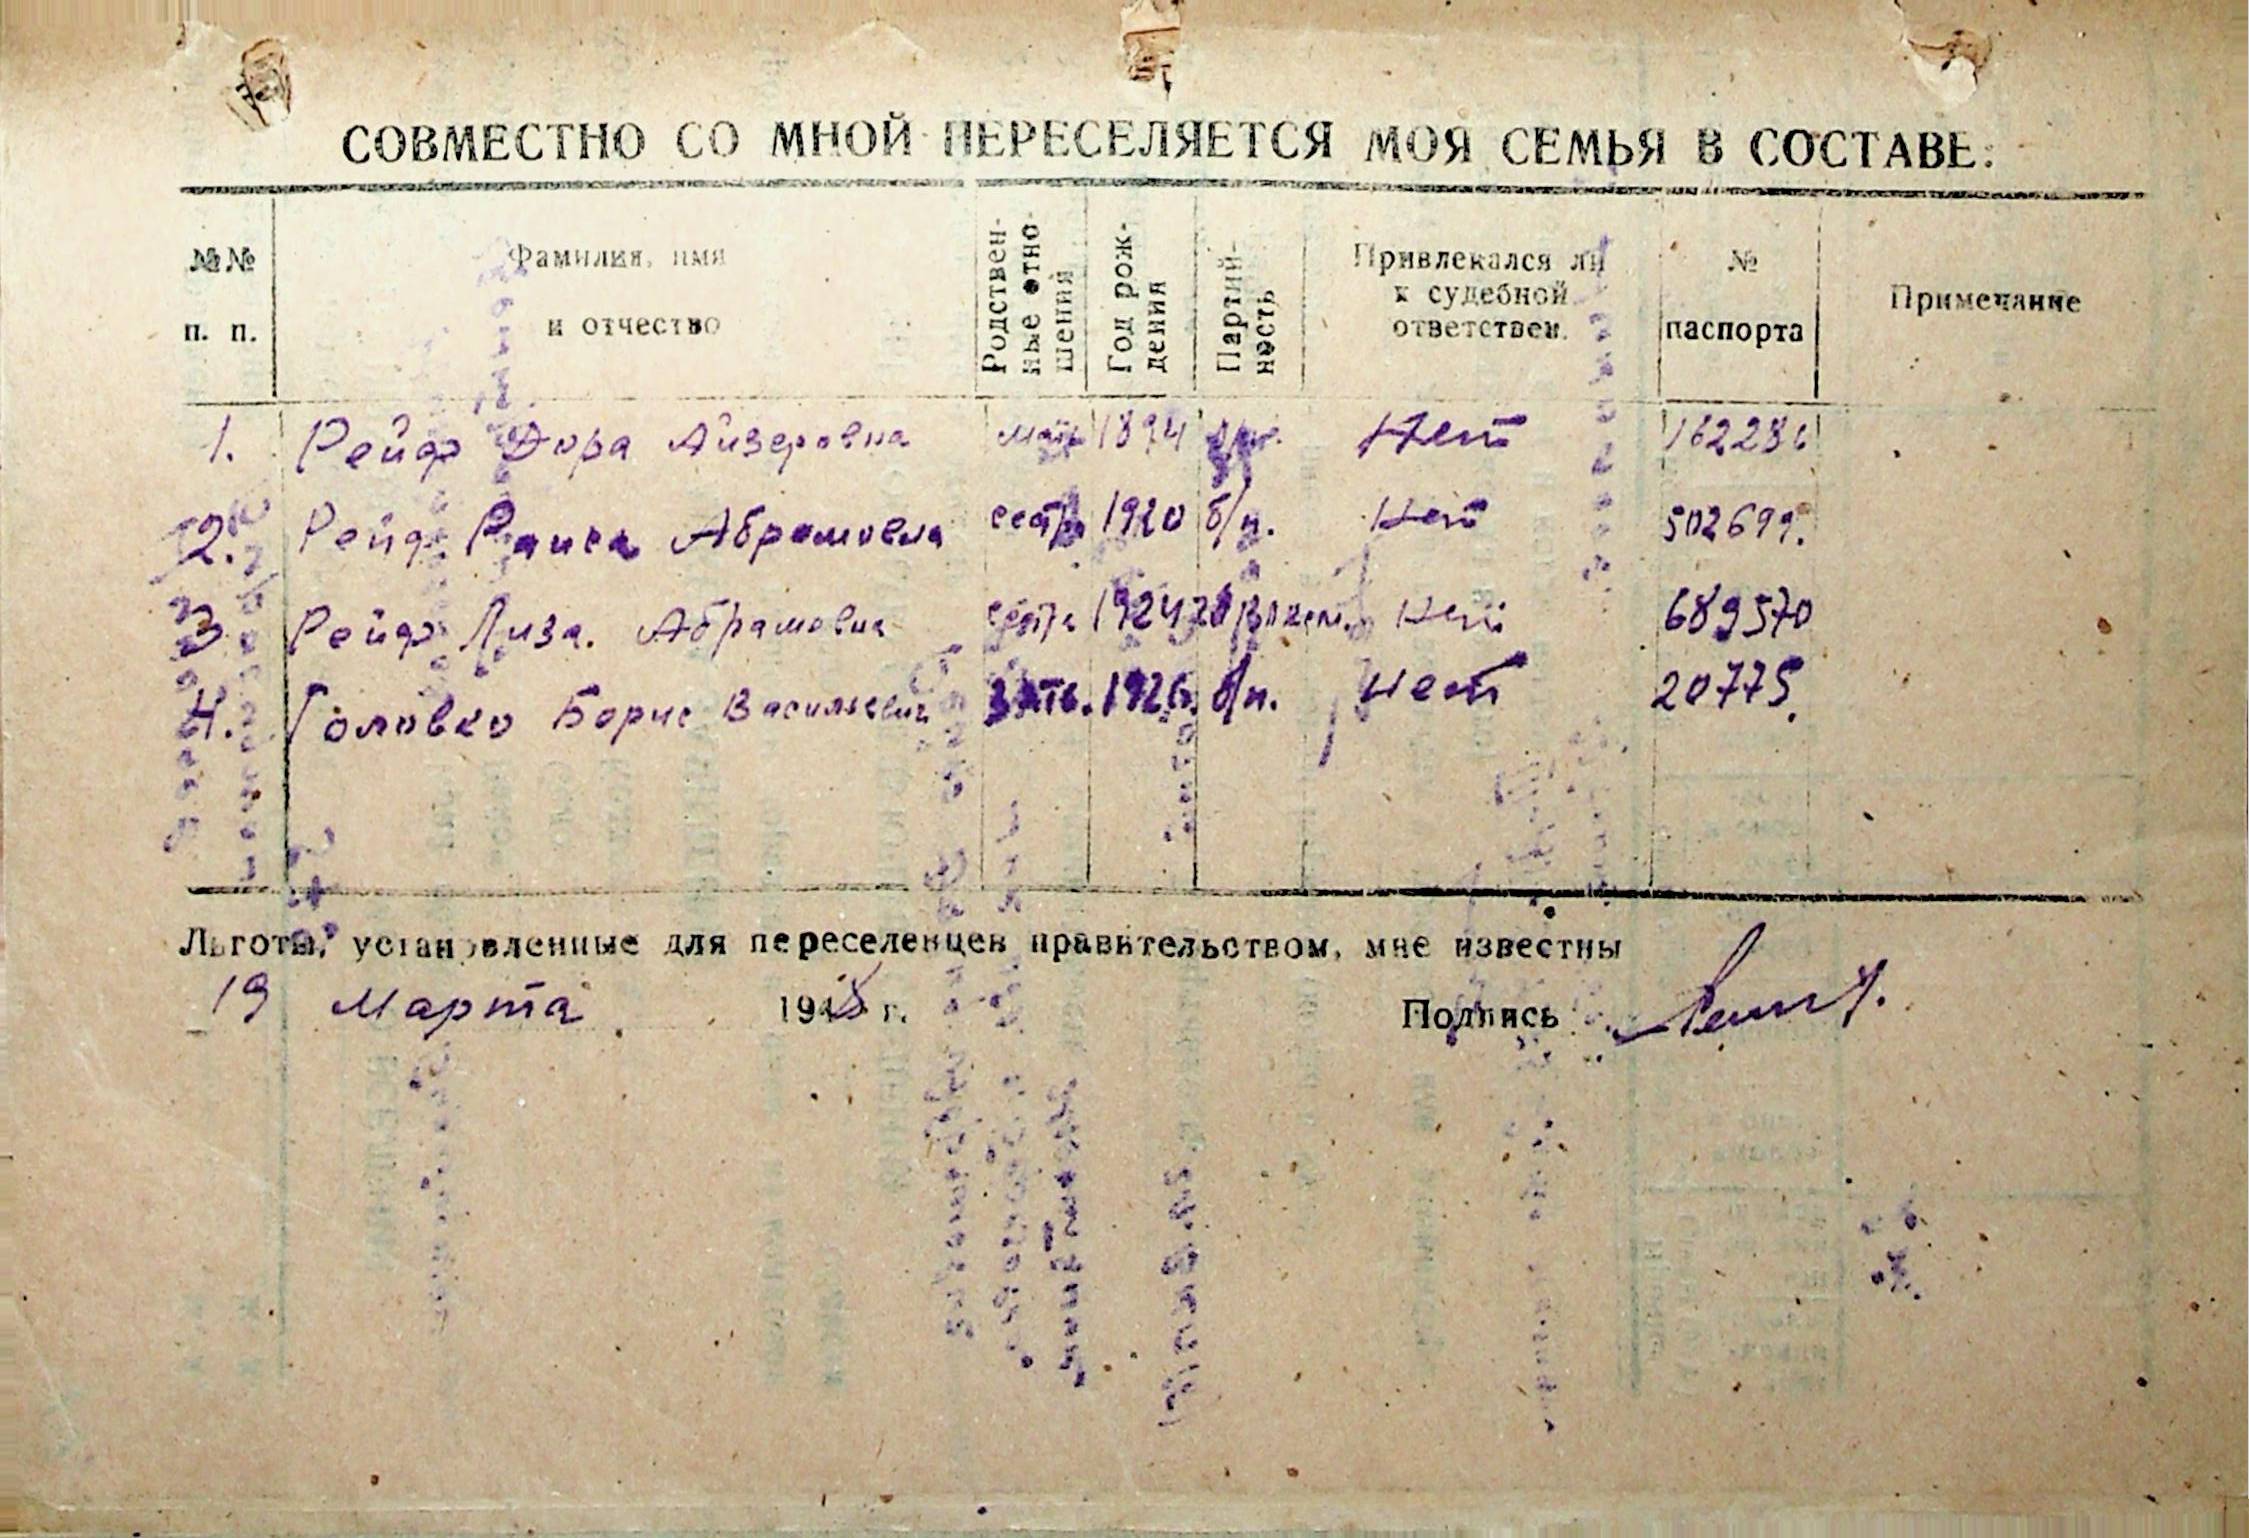 СОВМЕСТНО СО МНОЙ ПЕРЕСЕЛЯЕТСЯ МОЯ СЕМЬЯ В СОСТАВЕ:
№№ п. п.
Фамилия, имя и отчество
Родствен-ные отно-шения
Год рож-дения
Партий-ность
Привлекался ли к судебной ответствен.
№ паспорта
Примечание
1. Рейф Дора Айзеровна мать 1894 Нет
2. Рейф Раиса Абрамовна сестр 1920 б/п. Нет 502699.
3 Рейф Лиза. Абрамовна сестра 1924 Нет 689570
4. Головко Борис Васильевич зять. 1926 б/п. Нет 20775.
Льготы, установленные для переселенцев правительством, мне известны
19 Марта 1948 г. Подпись